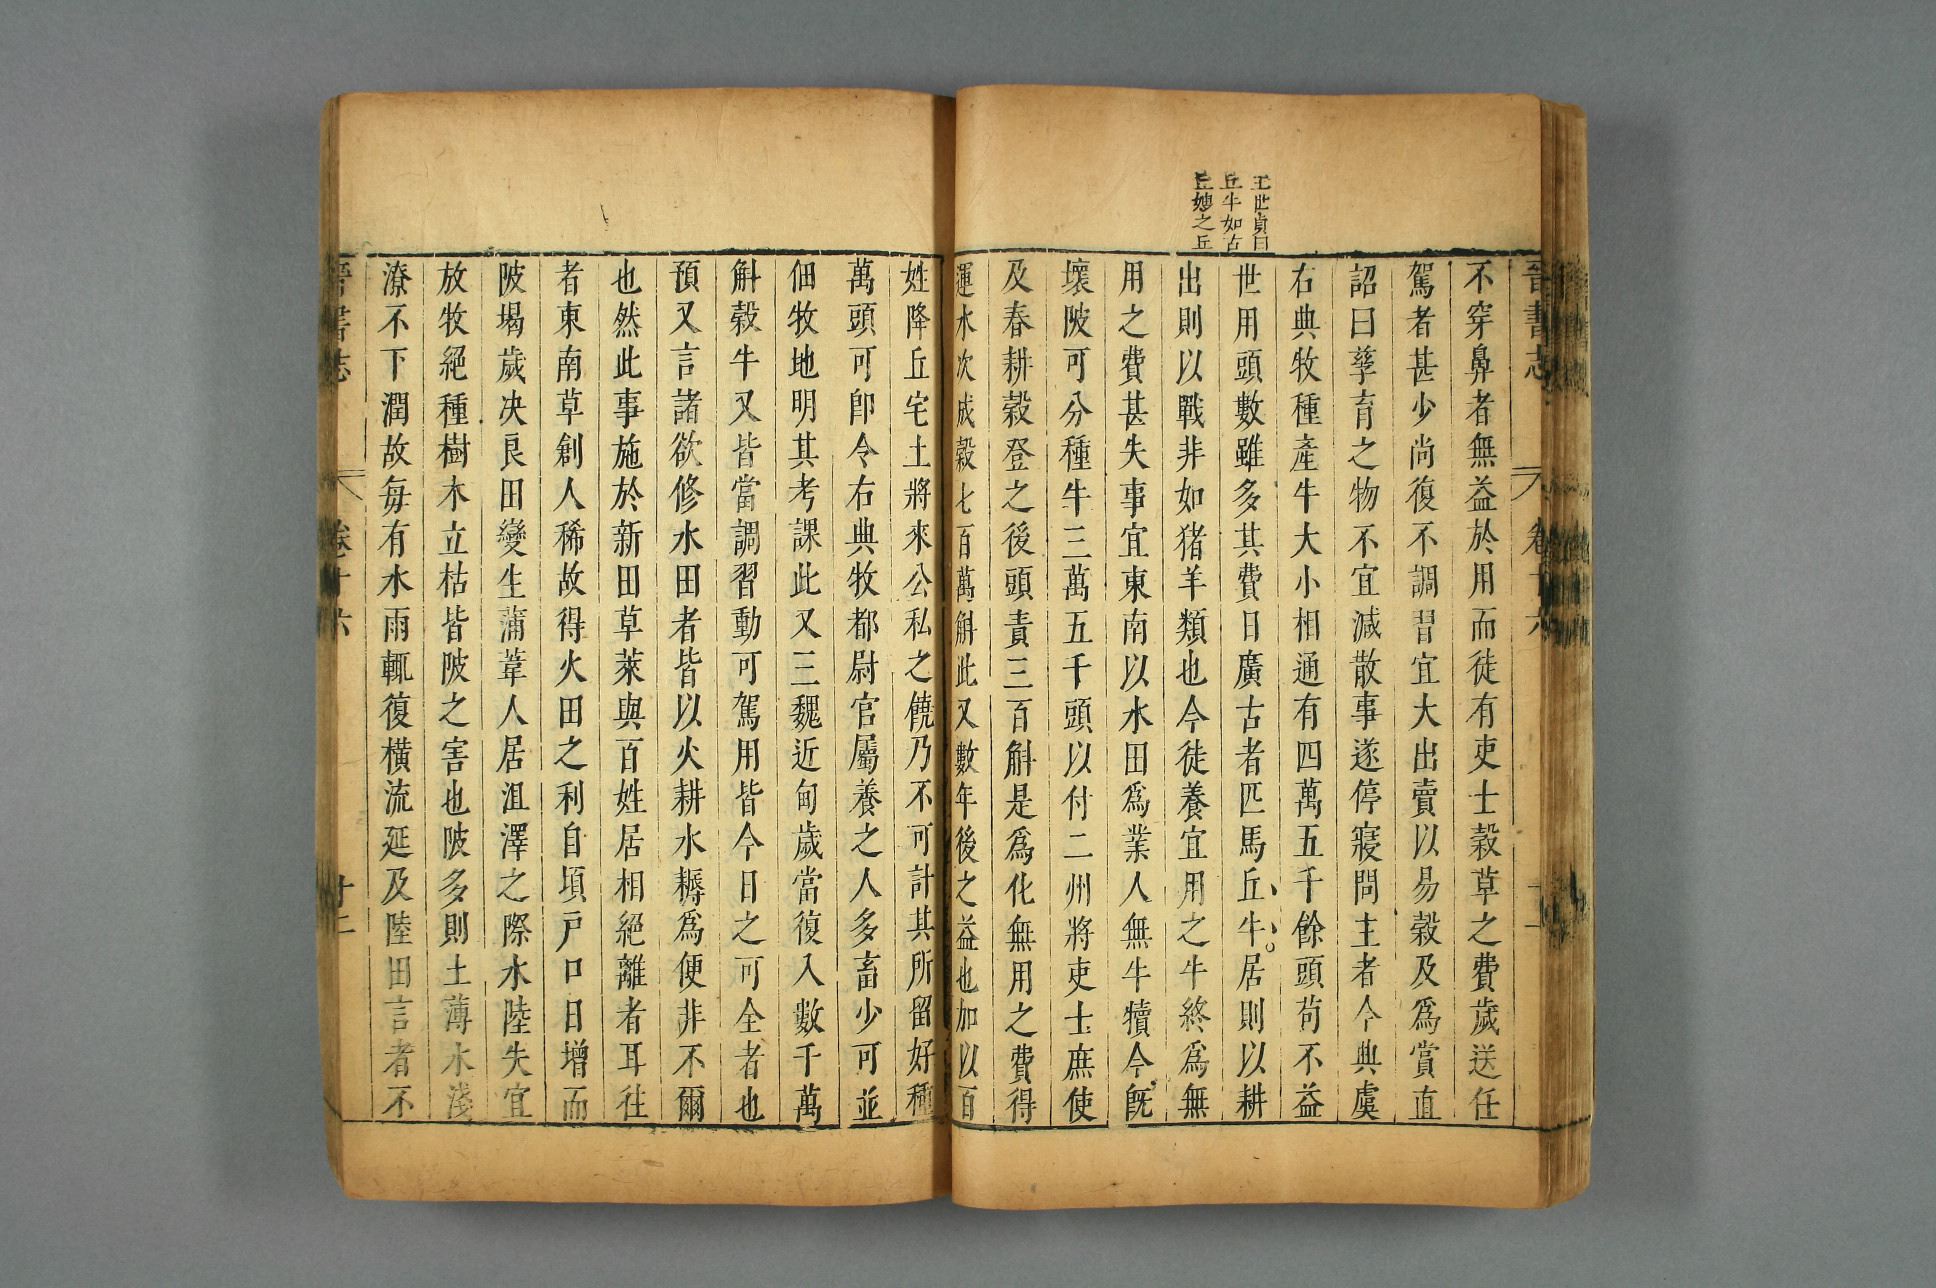 王世貞曰
丘牛如古
丘嫂之丘
晉書志 卷廿六
不穿鼻者無益於用而徒有吏士穀草之費歲送任
駕者甚少尚復不調習宜大出賣以易穀及爲賞直
詔曰孳育之物不宜減散事遂停寢問主者今典虞
右典牧種產牛大小相通有四萬五千餘頭苟不益
世用頭數雖多其費日廣古者匹馬丘牛居則以耕
出則以戰非如猪羊類也今徒養宜用之牛終爲無
用之費甚失事宜東南以水田爲業人無牛犢今旣
壞陂可分種牛三萬五千頭以付二州將吏士庶使
及春耕穀登之後頭責三百斛是爲化無用之費得
運水次成穀七百萬斛此又數年後之益也加以百
姓降丘宅土將來公私之饒乃不可計其所留好種
萬頭可卽令右典牧都尉官屬養之人多畜少可並
佃牧地明其考課此又三魏近甸歲當復入數千萬
斛穀牛又皆當調習動可駕用皆今日之可全者也
預又言諸欲修水田者皆以火耕水耨爲便非不爾
也然此事施於新田草萊與百姓居相絕離者耳往
者東南草創人稀故得火田之利自頃戸口日增而
陂堨歲决良田變生蒲葦人居沮澤之際水陸失宜
放牧絕種樹木立枯皆陂之害也陂多則土薄水淺
潦不下潤故每有水雨輒復橫流延及陸田言者不
晉書志 卷廿六 廿二